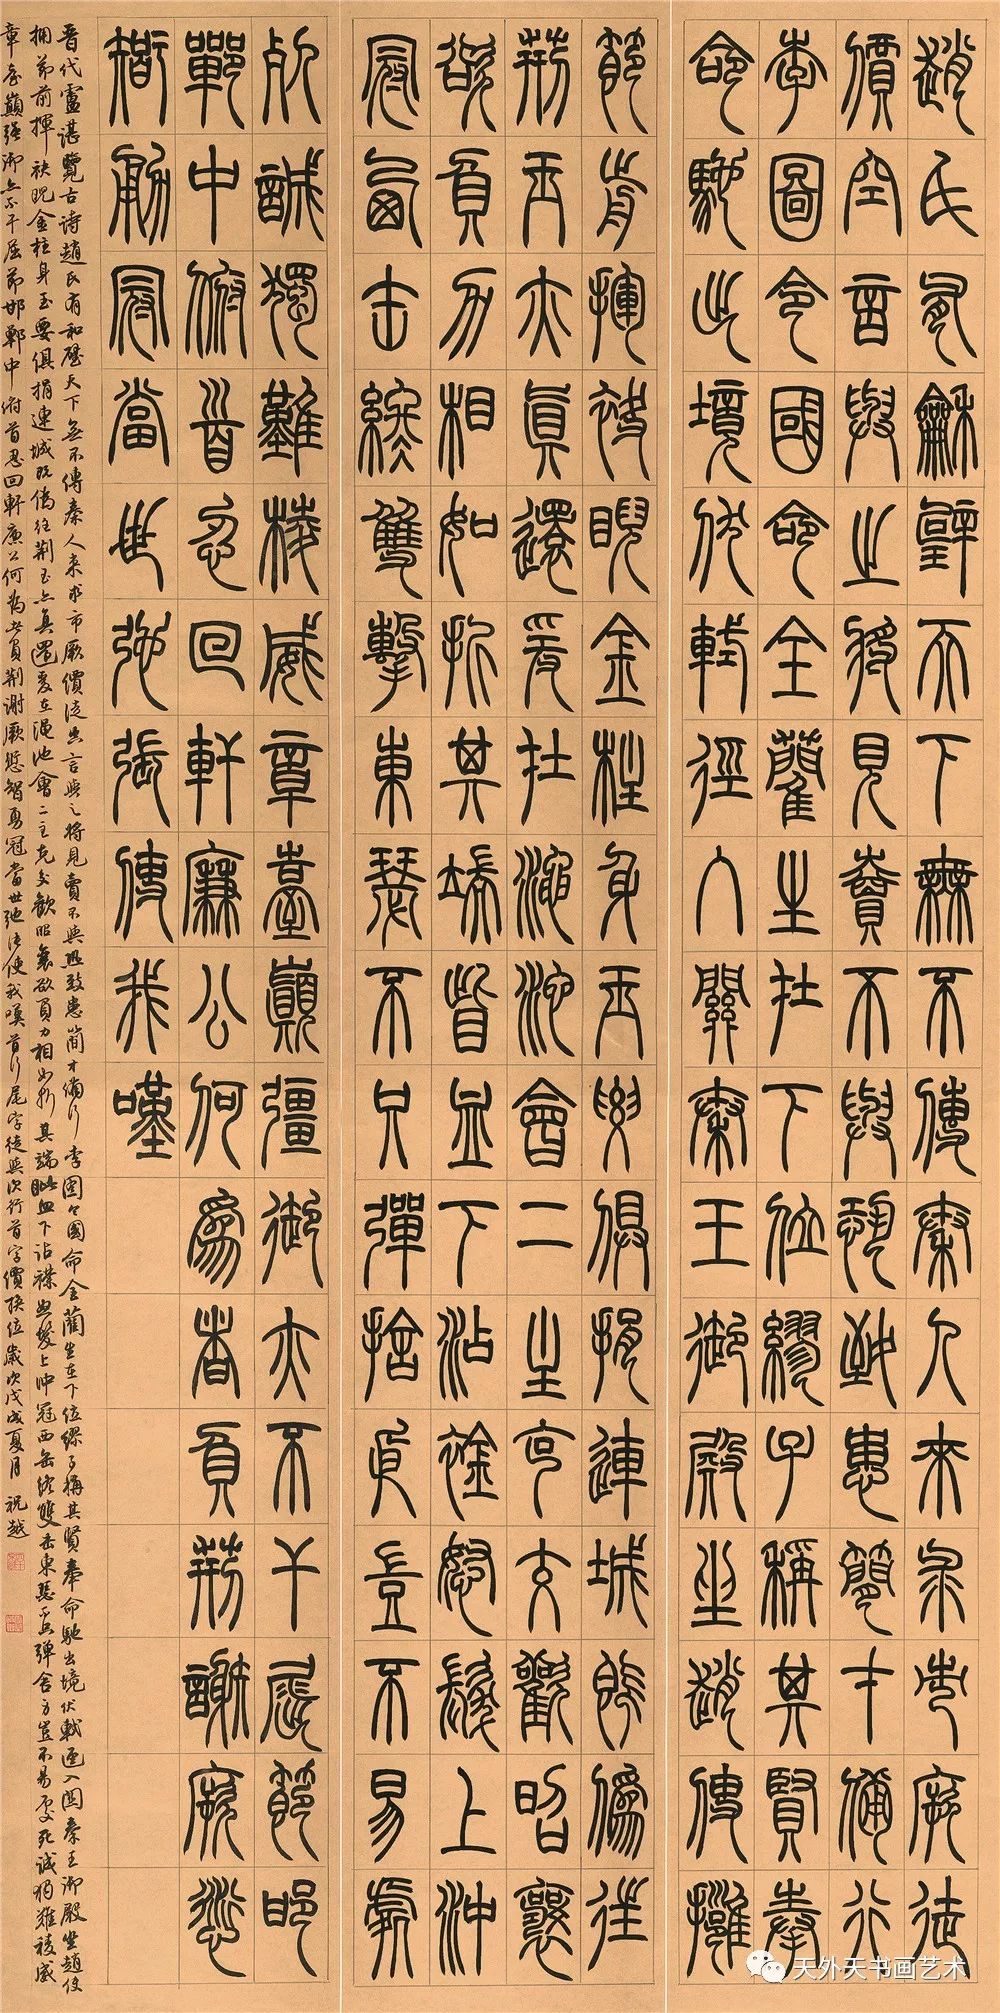 趙氏有龢璧天下無不傳秦人來求市厥徒
價空言與之將見賣不與恐致患簡才備行
李圖令國命全藺生在下位繆子稱其賢奉
命馳出境伏軾徑入關秦王御殿坐趙使擁
節前揮袂睨金柱身玉要俱捐連城既偽往
荊玉亦真還爰在澠池會二主克交歡昭襄
欲負力相如折其端眥血下沾衿怒髮上沖
冠西缶終雙擊東瑟不隻彈捨生豈不易處
死誠獨難稜威章臺顛彊御亦不干屈節邯
鄲中俯首忍回軒廉公何為者負荊謝厥愆
智勇冠當世弛張使我嘆
晉代盧諶覽古詩趙氏有和璧天下無不傳秦人來求市厥價徒空言與之將見賣不與恐致患簡才備行李圖令國命全藺生在下位繆子稱其賢奉命馳出境伏軾徑入關秦王御殿坐趙使
擁節前揮袂睨金柱身玉要俱捐連城既偽往荊玉亦真還爰在澠池會二主克交歡昭襄欲負力相如折其端眥血下沾襟怒髮上沖冠西缶終雙擊東瑟不隻彈舍生豈不易處死誠獨難稜威
章臺巔強御亦不干屈節邯鄲中俯首忍回軒廉公何為者負荊謝厥愆智勇冠當世弛張使我嘆首行尾字徒與次行首字價換位歲次戊戌夏月 祝越
天外天书画艺术